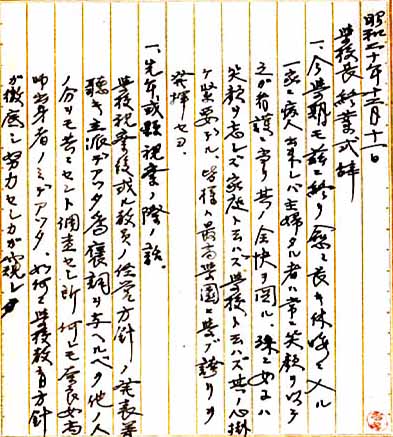 昭和二十年十二月十一日
学校長終業式辞
一、今学期モ茲ニ終リ愈々長キ休暇ニ入ル
一家ニ病人出来レバ主婦タル者ハ常ニ笑顔ヲ以テ
之ガ看護ニ当リ其ノ全快ヲ図ル、殊ニ女子ハ
笑顔ヲ忘レズ家庭トイハズ学校トイハズ其ノ心掛
ケ緊要デル、皆様ハ最高学園ニ学ブ誇リヲ
発揮セヨ
一、先年或ル視察ノ際ノ話
学校視察後或ル教員ノ経営方針ノ発表ヲ
聴キ立派デアツタ為褒詞ヲ与ヘルベク他ノ人
ノ分モ共ニセント調査セシ所何レモ奈良女高
師出身者ノミデアツタ、如何ニ学校教育方針
ガ徹底シ努力セシカガ窺レ